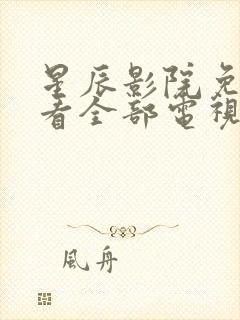 星辰影院免
看全部電視
風舟